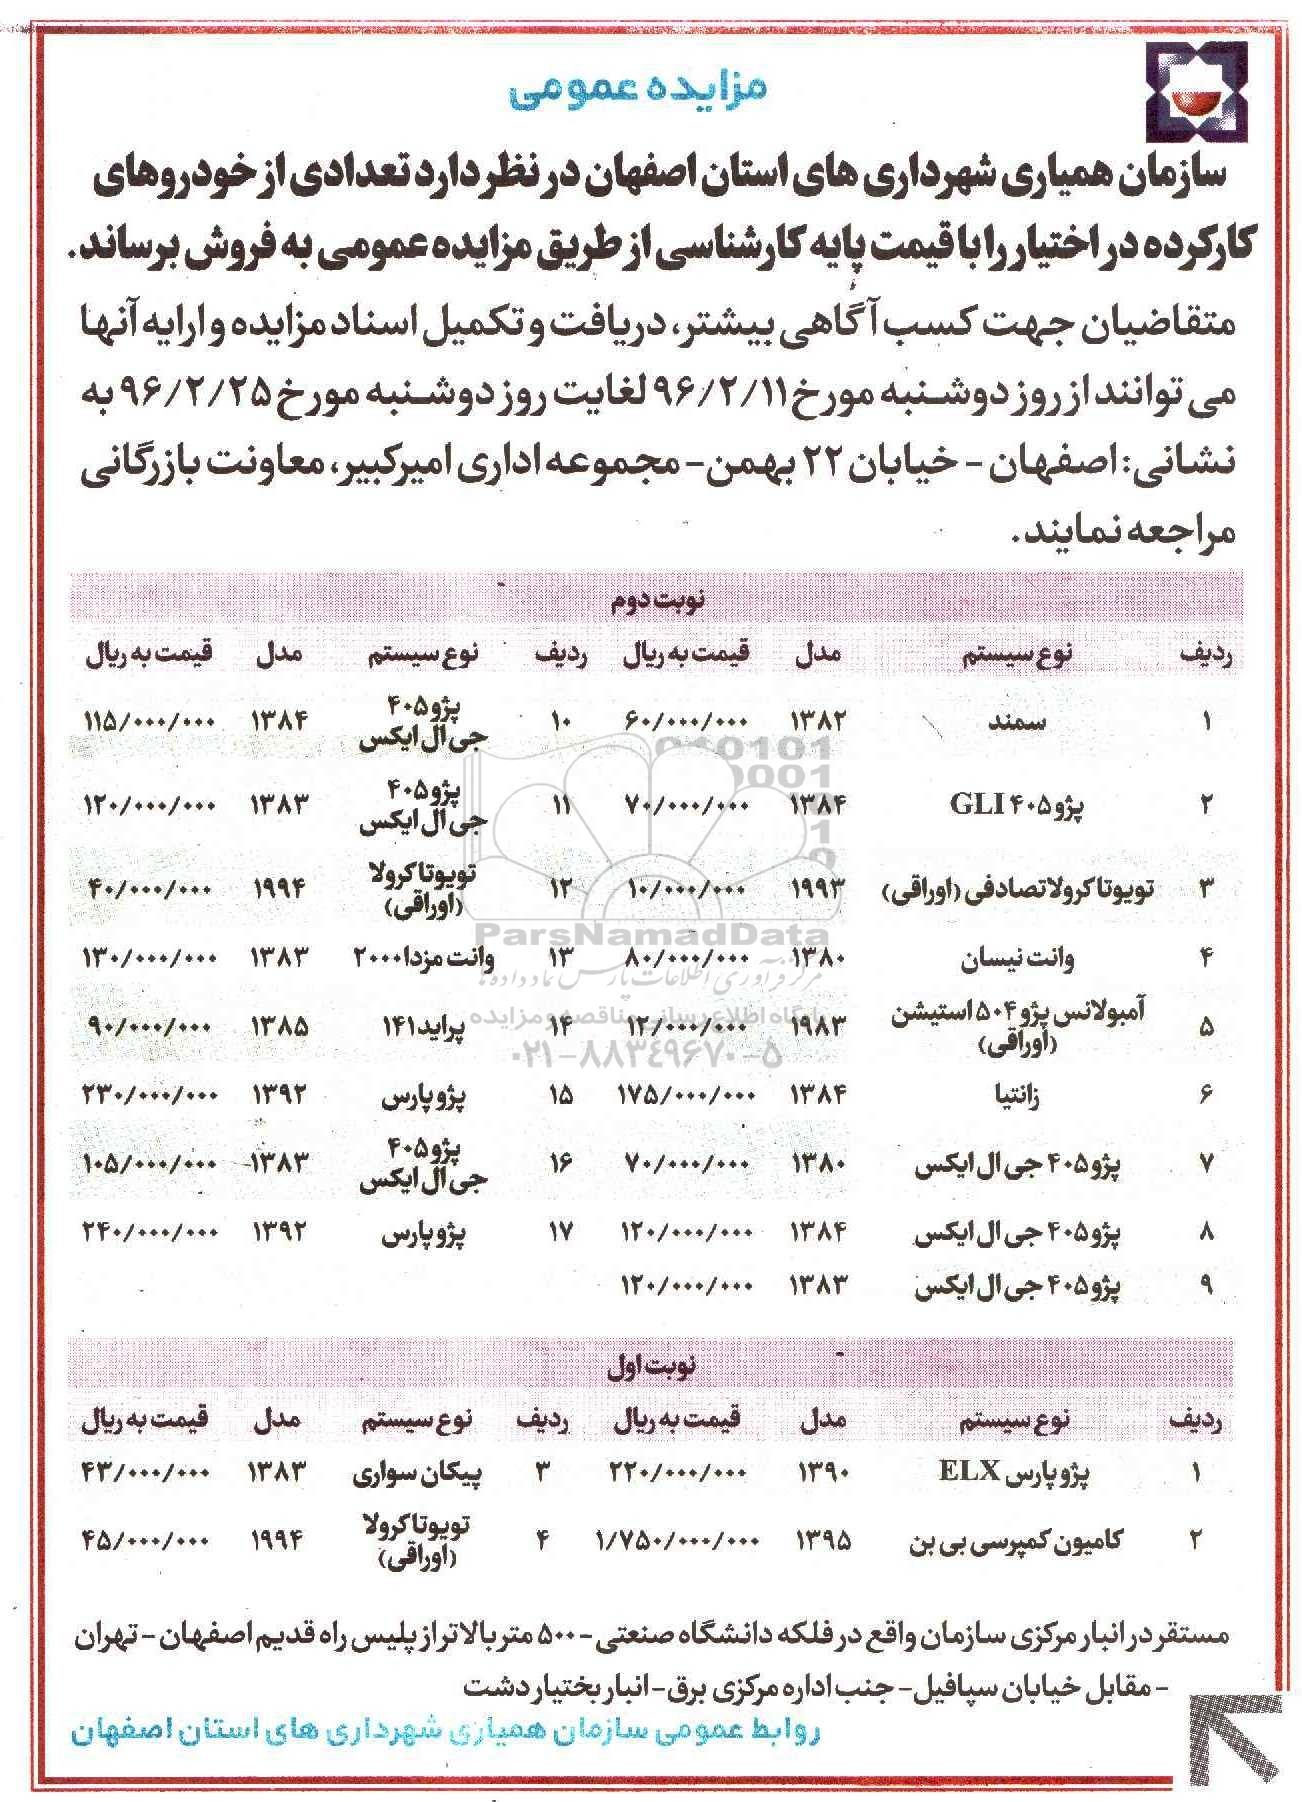 مزایده عمومی
سازمان همیاری شهرداری های استان اصفهان در نظر دارد تعدادی از خودروهای
کارکرده در اختیار را با قیمت پایه کارشناسی از طریق مزایده عمومی به فروش برساند.
متقاضیان جهت کسب آگاهی بیشتر، دریافت و تکمیل اسناد مزایده و ارایه آنها
می توانند از روز دوشنبه مورخ ۹۶/۲/۱۱ لغایت روز دوشنبه مورخ ۹۶/۲/۲۵ به
نشانی: اصفهان - خیابان ۲۲ بهمن - مجموعه اداری امیرکبیر، معاونت بازرگانی
مراجعه نمایند.
نوبت دوم
ردیف نوع سیستم مدل قیمت به ریال ردیف نوع سیستم مدل قیمت به ریال
۱ سمند ۱۳۸۲ ۶۰/۰۰۰/۰۰۰ ۱۰ پژو ۴۰۵ جی ال ایکس ۱۳۸۴ ۱۱۵/۰۰۰/۰۰۰
۲ پژو ۴۰۵ GLI ۱۳۸۴ ۷۰/۰۰۰/۰۰۰ ۱۱ پژو ۴۰۵ جی ال ایکس ۱۳۸۳ ۱۲۰/۰۰۰/۰۰۰
۳ تویوتا کرولا تصادفی (اوراقی) ۱۹۹۳ ۱۰/۰۰۰/۰۰۰ ۱۲ تویوتا کرولا (اوراقی) ۱۹۹۴ ۴۰/۰۰۰/۰۰۰
۴ وانت نیسان ۱۳۸۰ ۸۰/۰۰۰/۰۰۰ ۱۳ وانت مزدا ۲۰۰۰ ۱۳۸۳ ۱۳۰/۰۰۰/۰۰۰
۵ آمبولانس پژو ۵۰۴ استیشن (اوراقی) ۱۹۸۳ ۱۲/۰۰۰/۰۰۰ ۱۴ پراید ۱۴۱ ۱۳۸۵ ۹۰/۰۰۰/۰۰۰
۶ زانتیا ۱۳۸۴ ۱۷۵/۰۰۰/۰۰۰ ۱۵ پژو پارس ۱۳۹۲ ۲۳۰/۰۰۰/۰۰۰
۷ پژو ۴۰۵ جی ال ایکس ۱۳۸۰ ۷۰/۰۰۰/۰۰۰ ۱۶ پژو ۴۰۵ جی ال ایکس ۱۳۸۳ ۱۰۵/۰۰۰/۰۰۰
۸ پژو ۴۰۵ جی ال ایکس ۱۳۸۴ ۱۲۰/۰۰۰/۰۰۰ ۱۷ پژو پارس ۱۳۹۲ ۲۴۰/۰۰۰/۰۰۰
۹ پژو ۴۰۵ جی ال ایکس ۱۳۸۳ ۱۲۰/۰۰۰/۰۰۰
ParsNamadData
مرکز فرآوری اطلاعات پارس نماد داده ها
پایگاه اطلاع رسانی مناقصه و مزایده
۰۲۱-۸۸۳۴۹۶۷۰-۵
نوبت اول
ردیف نوع سیستم مدل قیمت به ریال ردیف نوع سیستم مدل قیمت به ریال
۱ پژو پارس ELX ۱۳۹۰ ۲۲۰/۰۰۰/۰۰۰ ۳ پیکان سواری ۱۳۸۳ ۴۳/۰۰۰/۰۰۰
۲ کامیون کمپرسی بی بن ۱۳۹۵ ۱/۷۵۰/۰۰۰/۰۰۰ ۴ تویوتا کرولا (اوراقی) ۱۹۹۴ ۴۵/۰۰۰/۰۰۰
مستقر در انبار مرکزی سازمان واقع در فلکه دانشگاه صنعتی - ۵۰۰ متر بالاتر از پلیس راه قدیم اصفهان - تهران
- مقابل خیابان سپافیل - جنب اداره مرکزی برق - انبار بختیار دشت
روابط عمومی سازمان همیاری شهرداری های استان اصفهان